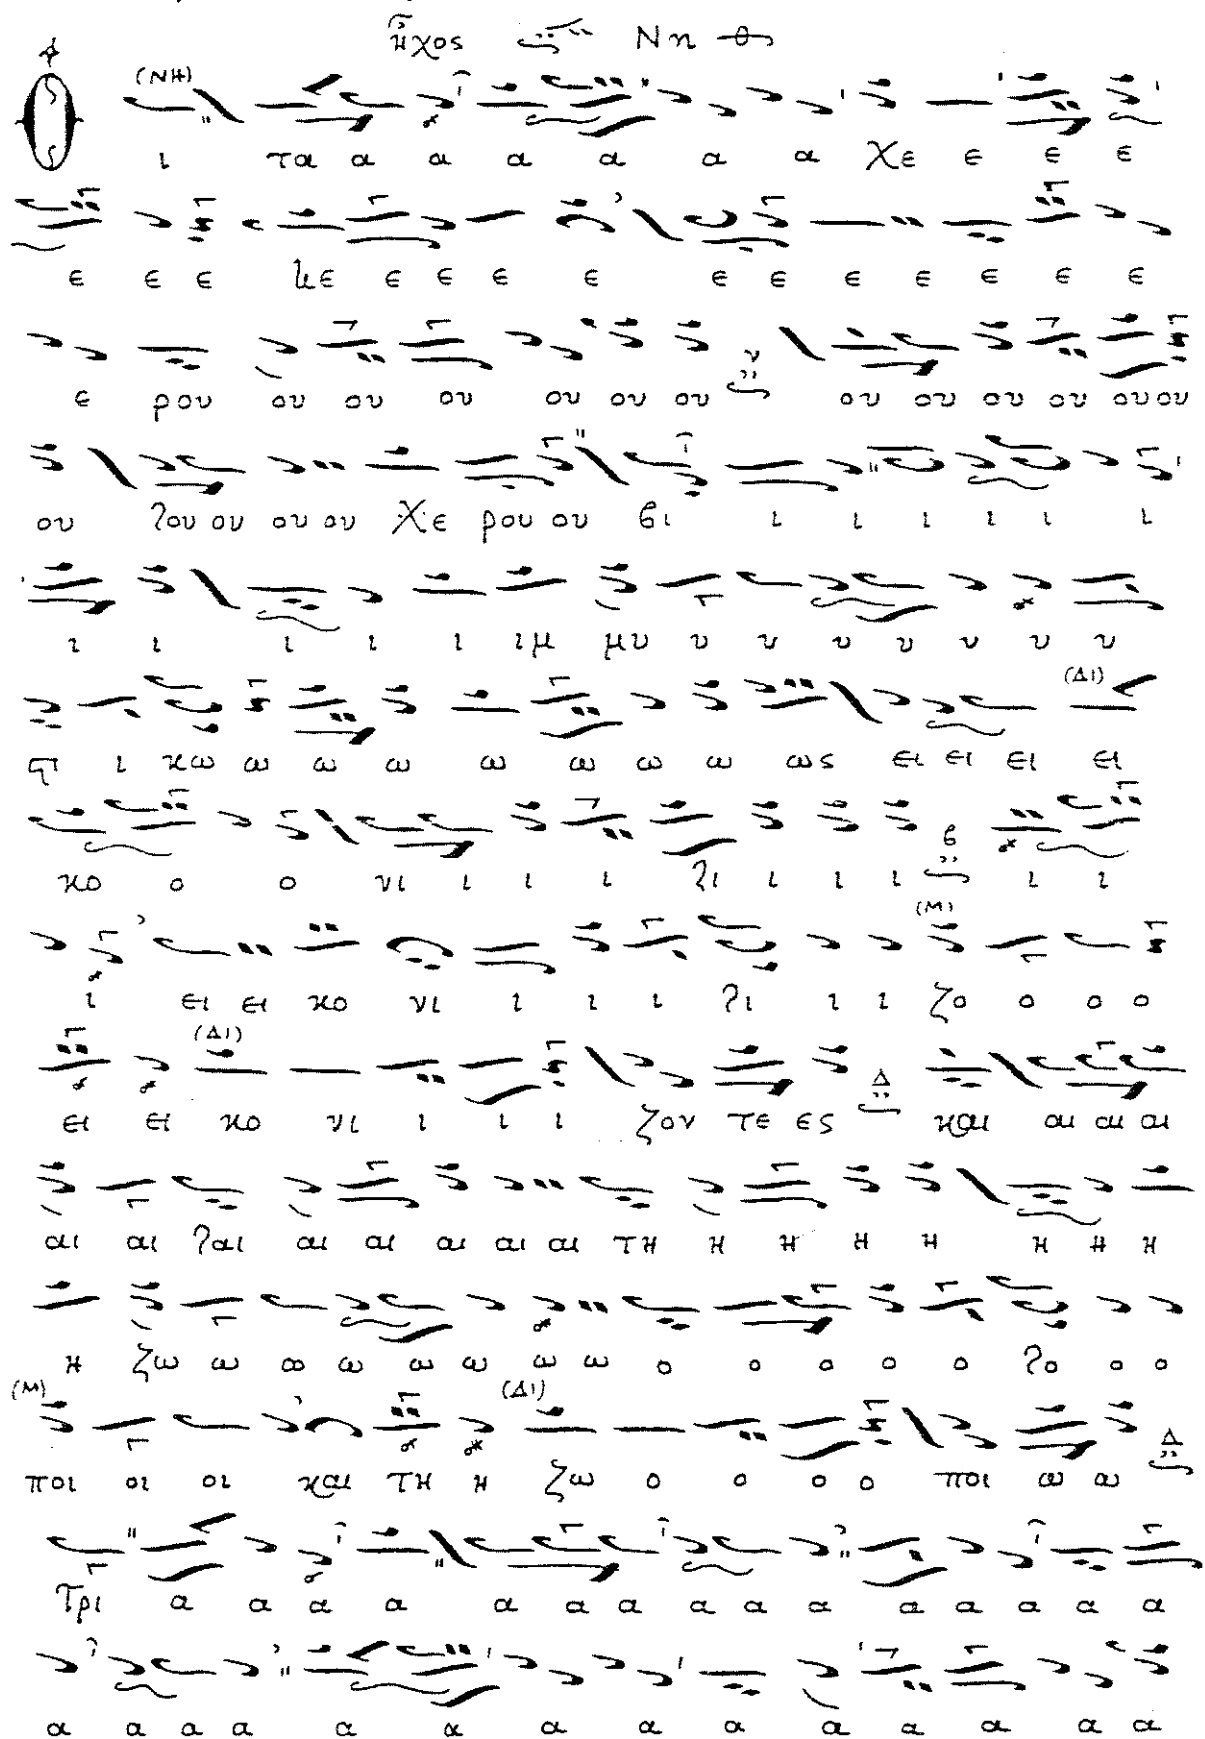 ἦχος Νη
(ΝΗ)
Ο ι τα α α α α α α χε ε ε ε
ε ε ε με ε ε ε ε ε ε ε ε ε ε ε
ε ρου ου ου ου ου ου ου ν ου ου ου ου ου ου
ου ου ου ου χε ρου ου βι ι ι ι ι ι ι
ι ι ι ι ι ιμ μυ υ υ υ υ υ υ υ
(ΔΙ)
στι ι κω ω ω ω ω ω ω ω ως ει ει ει ει
κο ο ο νι ι ι ι ι ι ι β ι ι
(Μ)
ι ει ει κο νι ι ι ι ι ι ζο ο ο ο
(ΔΙ)
ει ει κο νι ι ι ι ζον τε ες Δ και αι αι αι
αι αι αι αι αι αι αι αι τη η η η η η η η
η ζω ω ω ω ω ω ω ω ο ο ο ο ο ο ο ο
(Μ) (ΔΙ)
ποι οι οι και τη η ζω ο ο ο ο ποι ω ω Δ
Τρι α α α α α α α α α α α α α α α
α α α α α α α α α α α α α α